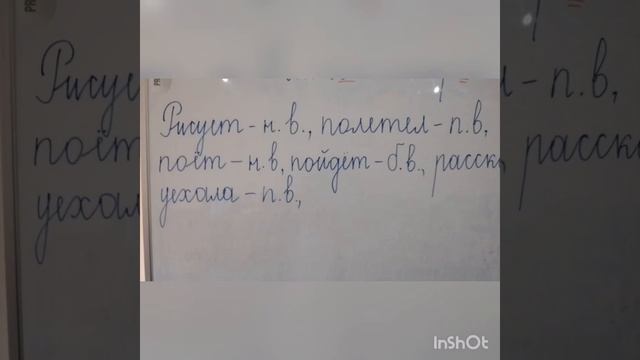 Рисует - н.в., полетел - п.в,
поёт - н.в, пойдёт - б.в., расск
уехала - п.в.,
InShOt